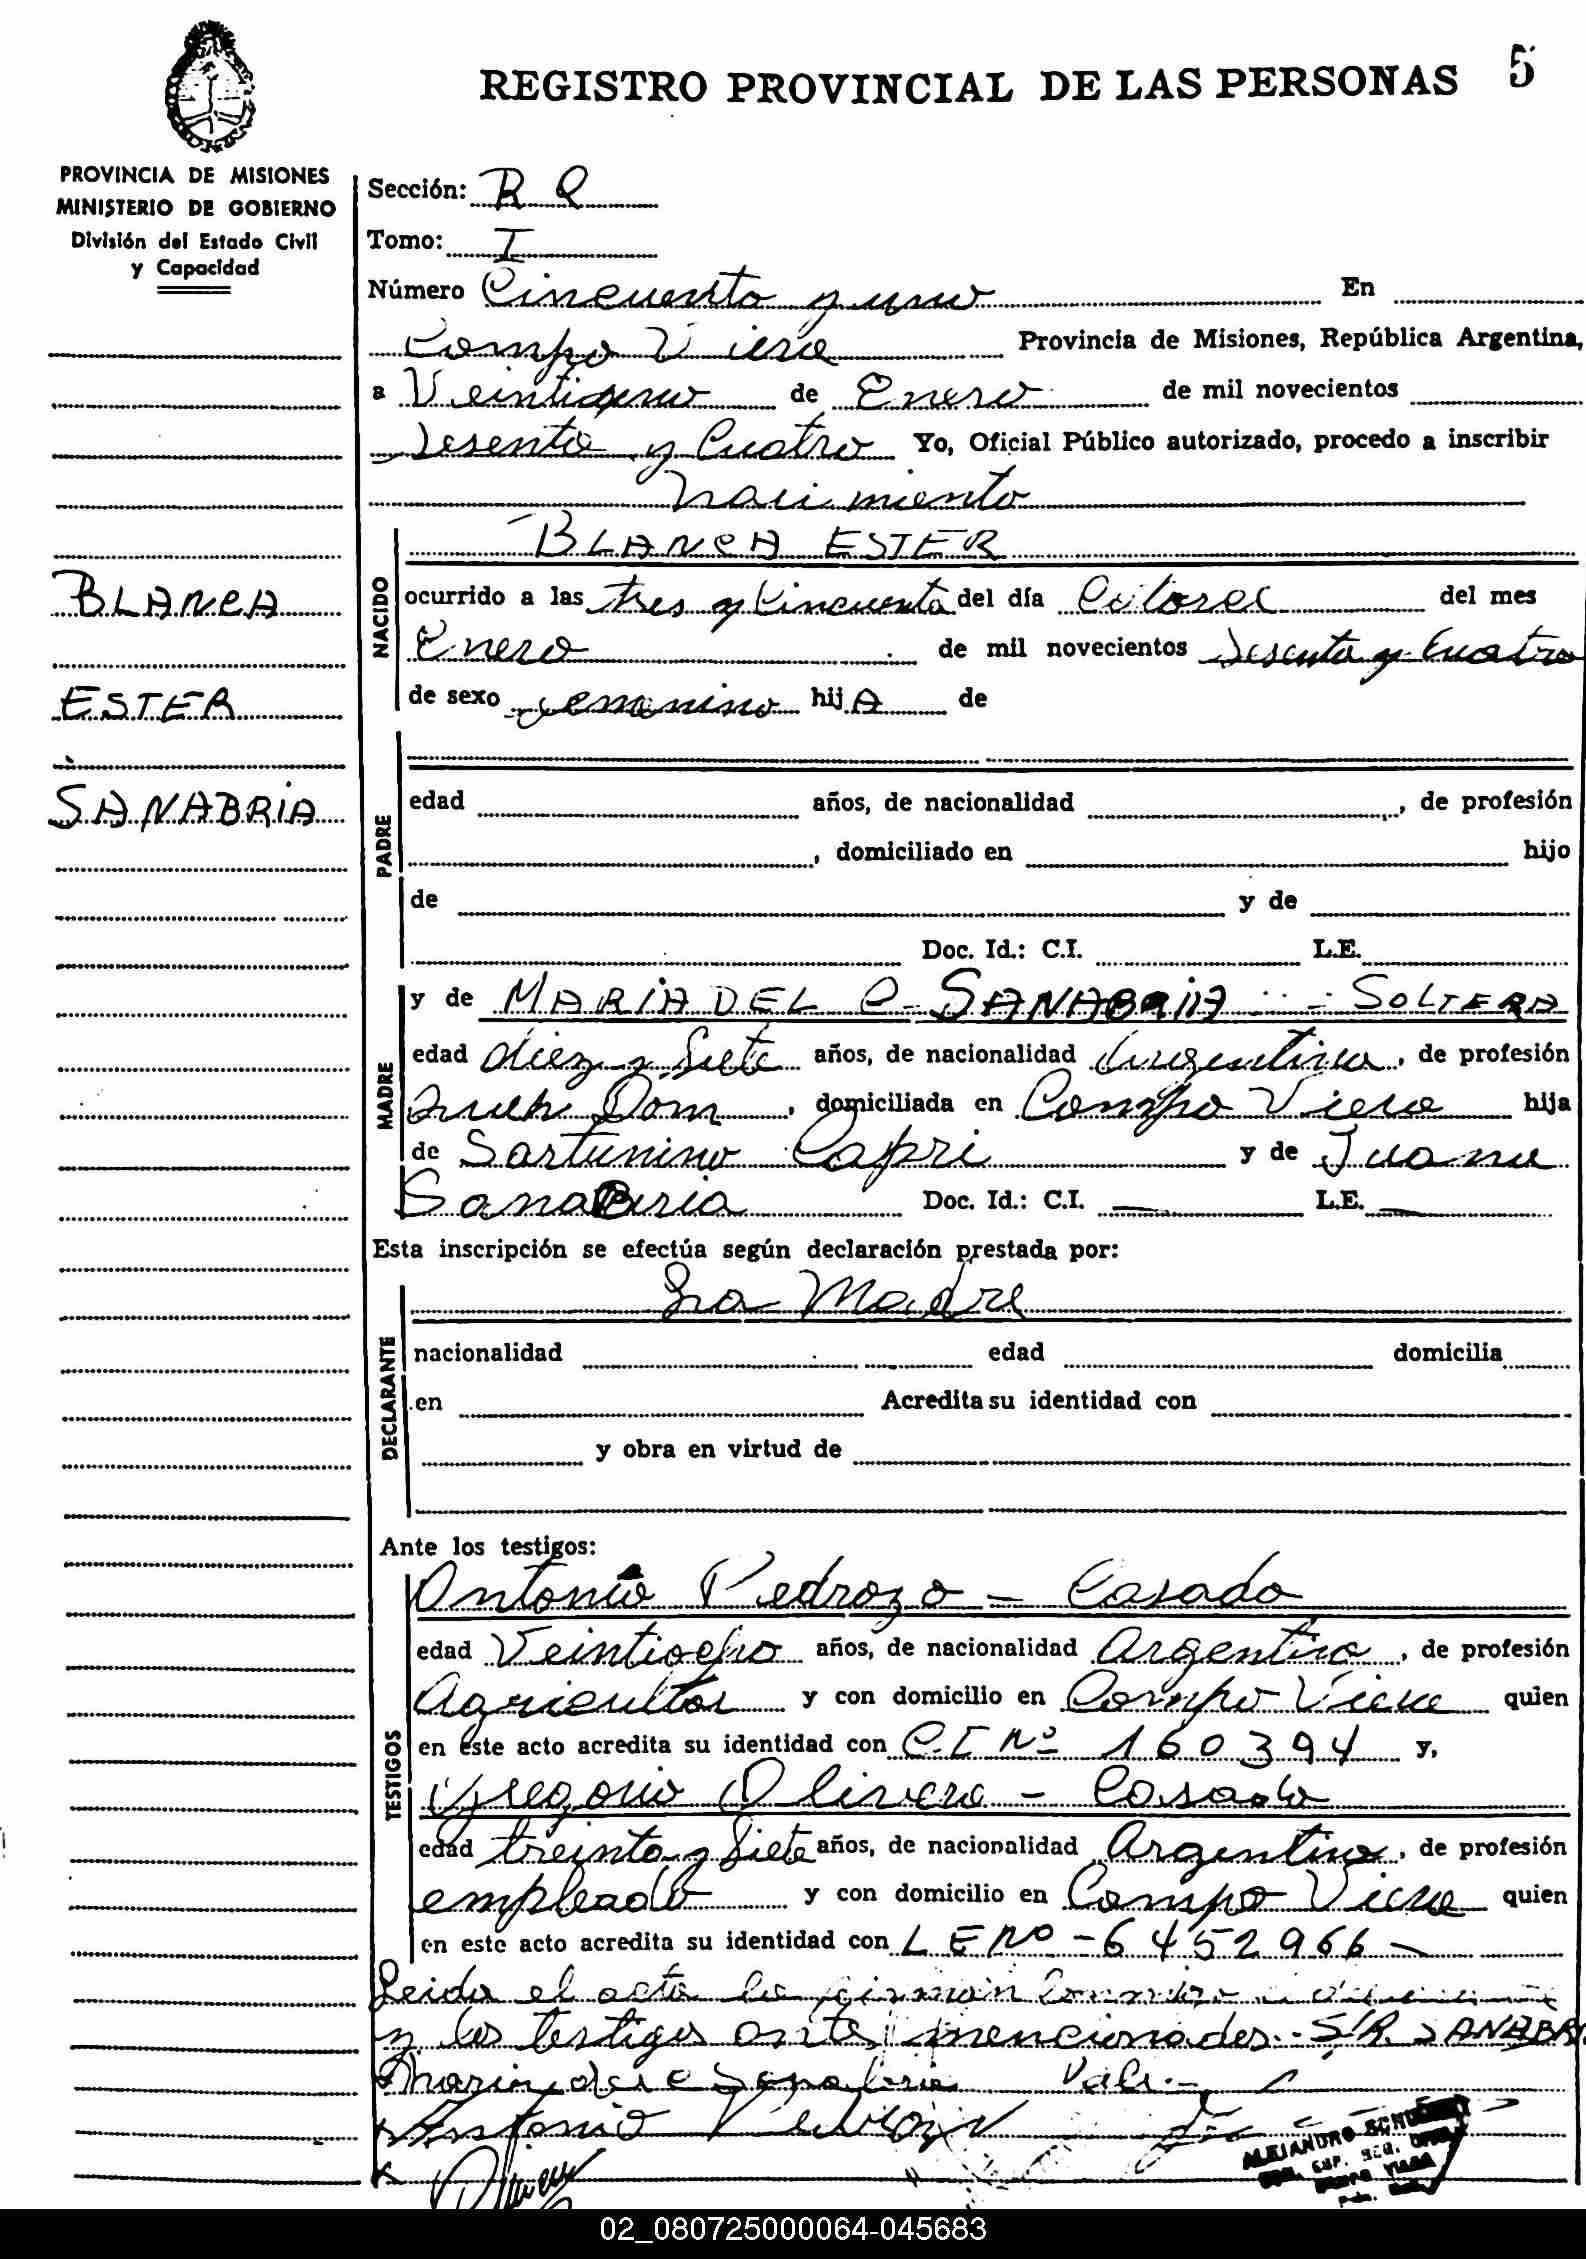 REGISTRO PROVINCIAL DE LAS PERSONAS 5
PROVINCIA DE MISIONES
MINISTERIO DE GOBIERNO
División del Estado Civil
y Capacidad
BLANCA
ESTER
SANABRIA
Sección: R Q
Tomo: I
Número Cincuenta y uno En
Campo Viera Provincia de Misiones, República Argentina,
a Veintiuno de Enero de mil novecientos
Sesenta y Cuatro Yo, Oficial Público autorizado, procedo a inscribir
nacimiento
NACIDO
BLANCA ESTER
ocurrido a las tres y Cincuenta del día Catorce del mes
Enero de mil novecientos Sesenta y Cuatro
de sexo femenino hijA de
PADRE
edad años, de nacionalidad , de profesión
, domiciliado en hijo
de y de
Doc. Id.: C.I. L.E.
MADRE
y de MARIA DEL C. SANABRIA - SOLTERA
edad diez y Siete años, de nacionalidad Argentina, de profesión
Dom , domiciliada en Campo Viera hija
de Sartunino Capri y de Juana
Sanabria Doc. Id.: C.I. — L.E. —
Esta inscripción se efectúa según declaración prestada por:
DECLARANTE
La Madre
nacionalidad edad domicilia
en Acredita su identidad con
y obra en virtud de
Ante los testigos:
TESTIGOS
Antonio Pedrozo - Casado
edad Veintiocho años, de nacionalidad Argentino, de profesión
Agricultor y con domicilio en Campo Viera quien
en este acto acredita su identidad con C.I Nº 160394 y,
Gregorio Olivera - Casado
edad treinta y Siete años, de nacionalidad Argentino, de profesión
empleado y con domicilio en Campo Viera quien
en este acto acredita su identidad con L E Nº - 6452966 -
Leida el acta la firman conmigo
y los testigos ante mencionados. - S/R. SANABRIA
Maria del C Sanabria Vale. -
Antonio Pedrozo
ALEJANDRO
02_080725000064-045683